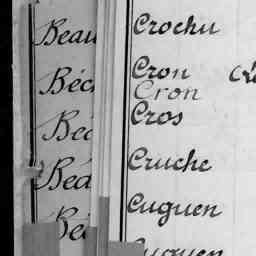 Beau
Béc
Béd
Béd
Bé
Crochu
Cron
Cron
Cros
Cruche
Cuguen
Cuguen